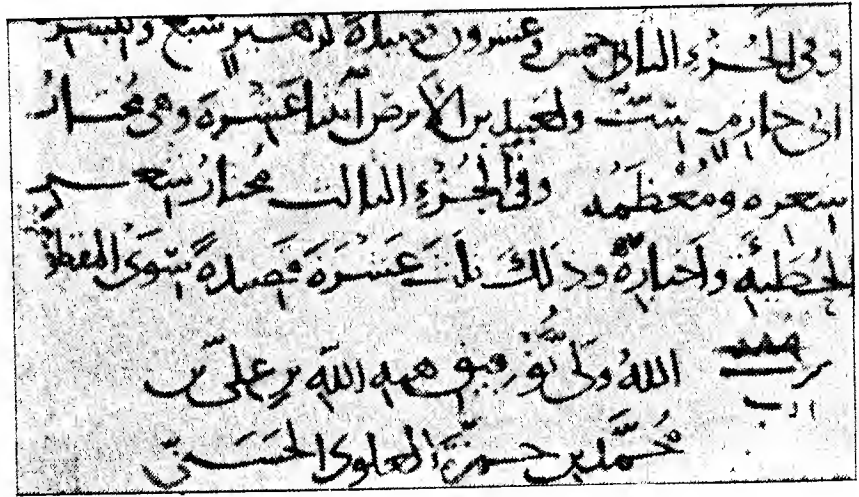 وفى الجُزءِ الثانى خمس وعشرون قصيدةً لزهيرٍ سَبع ولبشر
ابن ابى خازمٍ سِتٌّ ولعبيد بن الأَبرص اثنتا عَشرةَ وهى مُختارُ
شعره ومُعظَمُه وفى الجُزءِ الثالث مُختارُ شعر
الحُطَيئَةِ واَخبارُهُ وذلكَ ثلثَ عَشرَةَ قصيدةً سِوَى المقطو
الله ولىُّ توفيق هبه الله بن على بن
مُحمَّد بن حمزَةَ العلوى الحسَنىّ
ادب